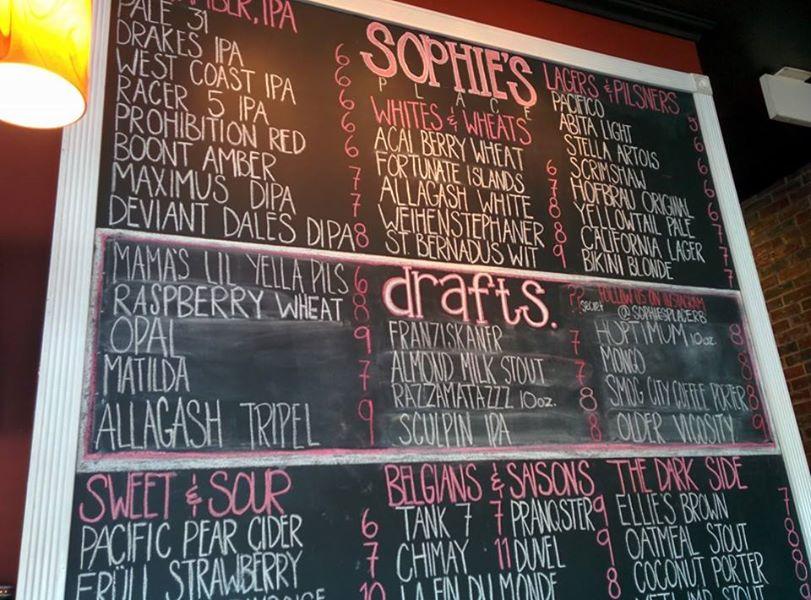 MBER, IPA
PALE 31
DRAKES IPA 6
WEST COAST IPA 6
RACER 5 IPA 6
PROHIBITION RED 6
BOONT AMBER 6
MAXIMUS DIPA 7
DEVIANT DALES DIPA 8
SOPHIE'S
PLACE
WHITES & WHEATS
ACAI BERRY WHEAT
FORTUNATE ISLANDS 6
ALLAGASH WHITE 7
WEIHENSTEPHANER 8
ST. BERNADUS WIT 9
LAGERS & PILSNERS
PACIFICO 5
ABITA LIGHT
STELLA ARTOIS 6
SCRIMSHAW 6
HOFBRAU ORIGINAL 6
YELLOWTAIL PALE 6
CALIFORNIA LAGER 7
BIKINI BLONDE 7
MAMA'S LIL YELLA PILS 6
RASPBERRY WHEAT 8
OPAL 9
MATILDA 7
ALLAGASH TRIPEL 9
drafts.
FRANZISKANER 7
ALMOND MILK STOUT 7
RAZZAMATAZZZ 10oz. 8
SCULPIN IPA 8
?? secret
FOLLOW US ON INSTAGRAM
@SOPHIESPLACERB
HOPTIMUM 10oz 8
MONGO 8
SMOG CITY COFFEE PORTER 8
OLDER VICOSITY 9
SWEET & SOUR
PACIFIC PEAR CIDER 6
FRÜLI STRAWBERRY 7
10
BELGIANS & SAISONS
TANK 7 7 PRANQSTER 9
CHIMAY 11 DUVEL 9
LA FIN DU MONDE 8
THE DARK SIDE
ELLIE'S BROWN 7
OATMEAL STOUT 8
COCONUT PORTER 8